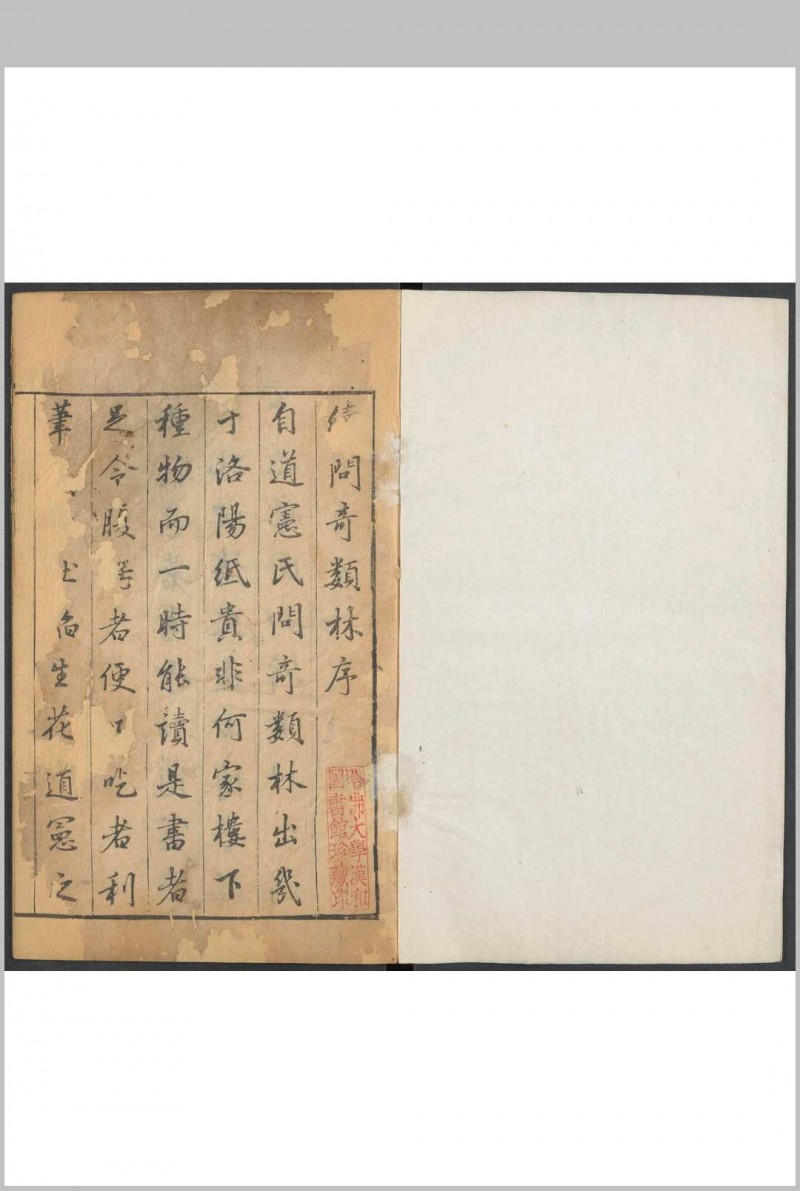 問奇類林序
自道憲氏問奇類林出幾
寸洛陽紙貴非何家樓下
種物而一時能讀是書者
足令腹 者便口吃者利
筆 生花道憲之
哈佛大學漢和
圖書館珍藏印